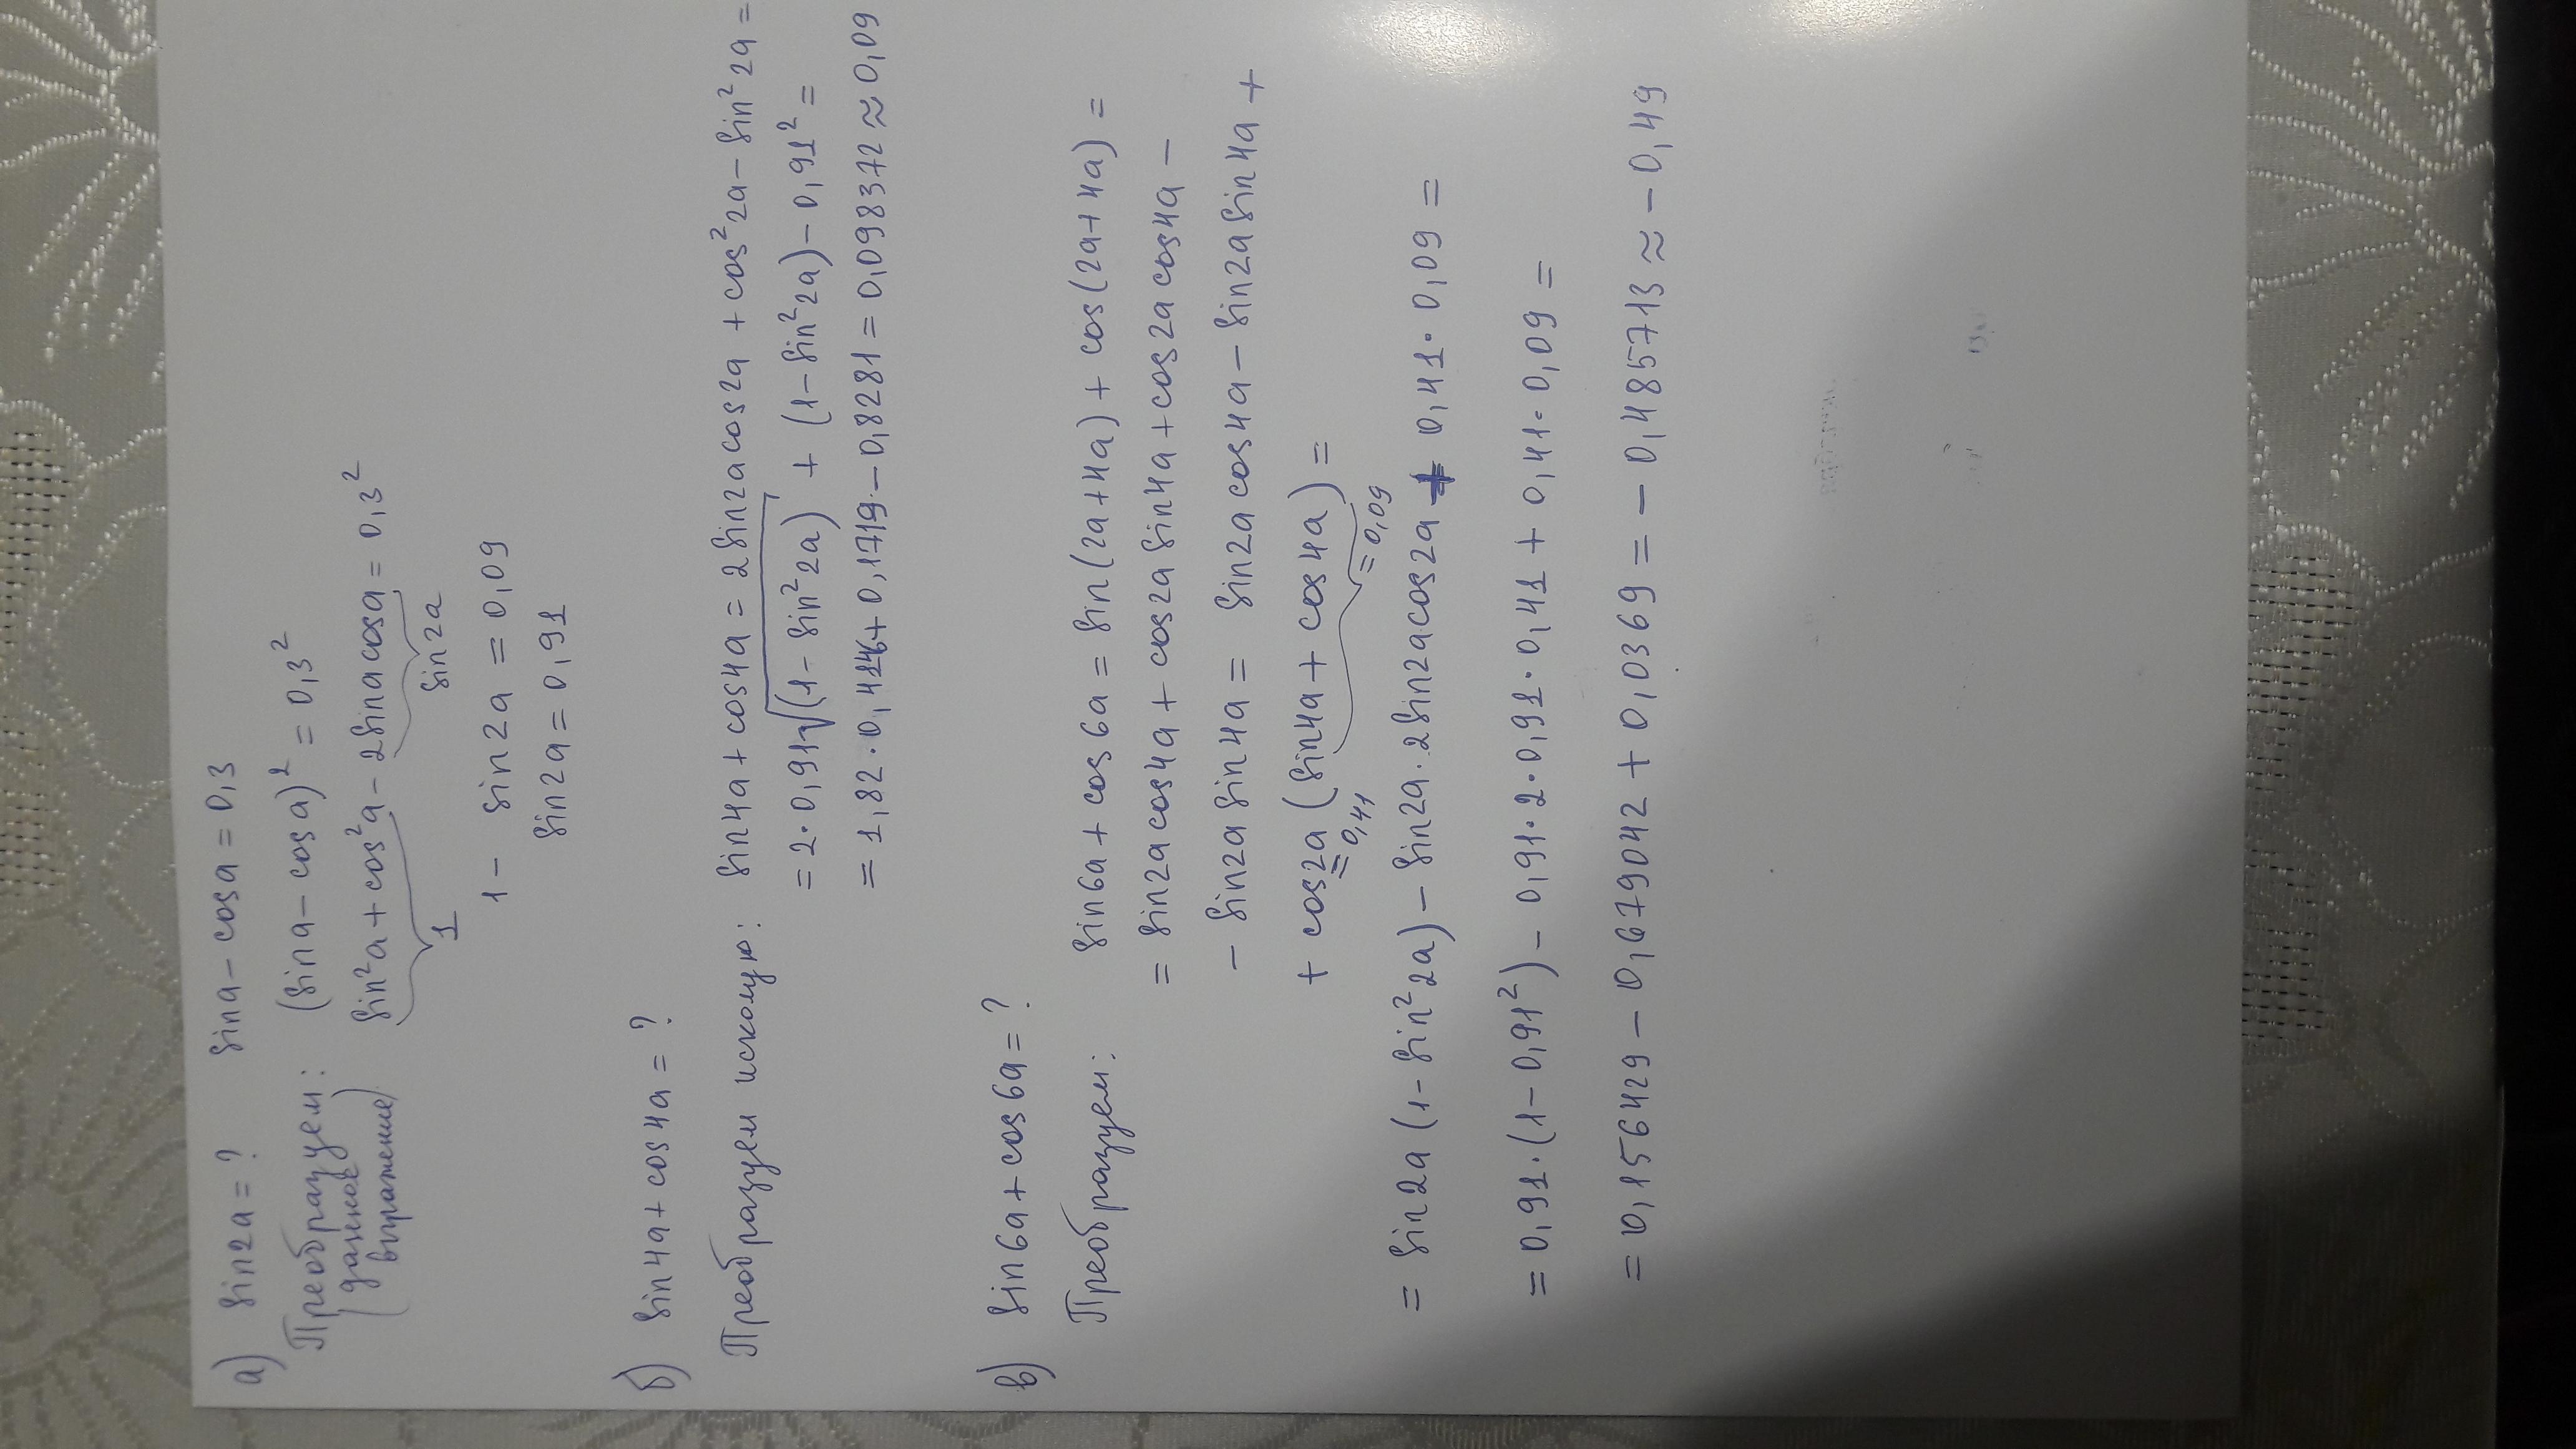 а) sin2a = ? sina - cosa = 0,3
Преобразуем: (sina - cosa)² = 0,3²
(данное выражение) sin²a + cos²a - 2sinacosa = 0,3²
1 sin2a
1 - sin2a = 0,09
sin2a = 0,91
б) sin4a + cos4a = ?
Преобразуем искомую: sin4a + cos4a = 2sin2acos2a + cos²2a - sin²2a =
= 2·0,91√(1 - sin²2a) + (1 - sin²2a) - 0,91² =
= 1,82·0,4146 + 0,1719 - 0,8281 = 0,098372 ≈ 0,09
в) sin6a + cos6a = ?
Преобразуем: sin6a + cos6a = sin(2a + 4a) + cos(2a + 4a) =
= sin2acos4a + cos2asin4a + cos2acos4a -
- sin2asin4a = sin2acos4a - sin2asin4a +
+ cos2a(sin4a + cos4a) =
= 0,41 = 0,09
= sin2a(1 - sin²2a) - sin2a·2sin2acos2a + 0,41·0,09 =
= 0,91·(1 - 0,91²) - 0,91·2·0,91·0,41 + 0,41·0,09 =
= 0,156429 - 0,679042 + 0,0369 = - 0,485713 ≈ - 0,49